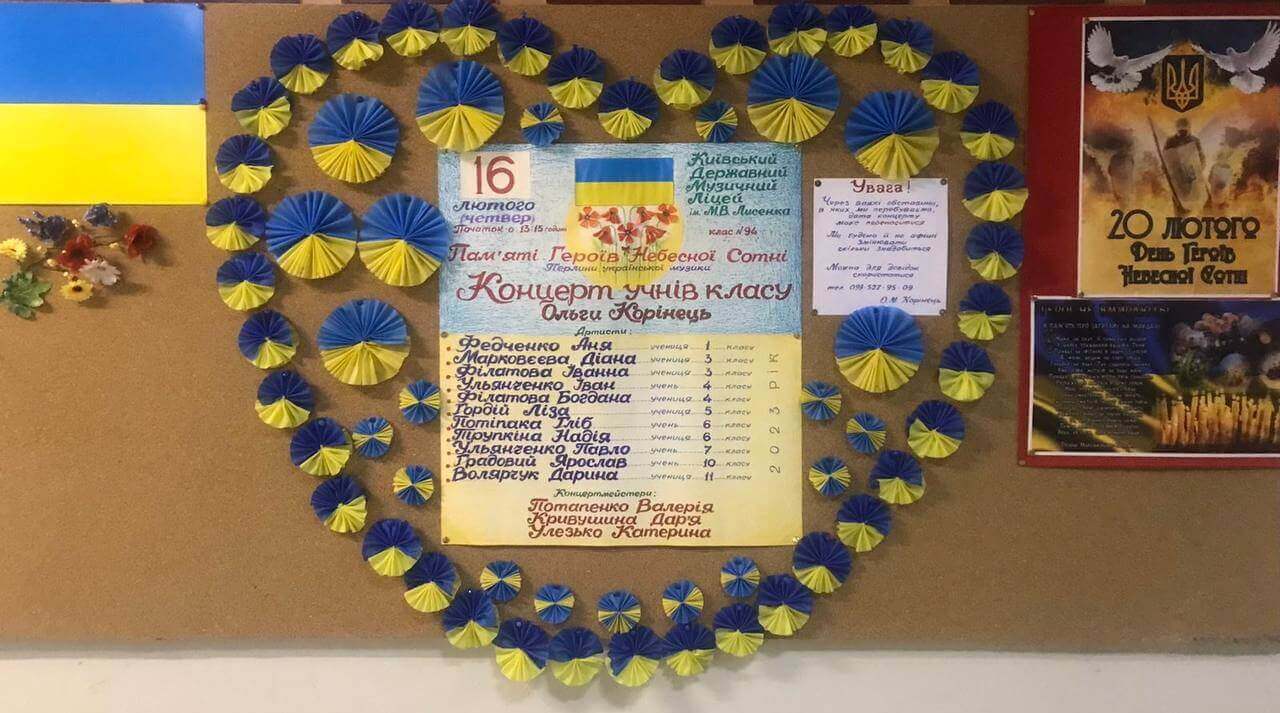 16
лютого
(четвер)
Початок о 13:15 годині
Київський
Державний
Музичний
Ліцей
ім. М.В. Лисенка
клас №94
Пам'яті Героїв Небесної Сотні
Перлини української музики
Концерт учнів класу
Ольги Корінець
Артисти:
Федченко Аня учениця 1 класу
Марковєєва Діана учениця 3 класу
Філатова Іванна учениця 3 класу
Ульянченко Іван учень 4 класу
Філатова Богдана учениця 4 класу
Гордій Ліза учениця 5 класу
Потіпака Гліб учень 6 класу
Трупкіна Надія учениця 6 класу
Ульянченко Павло учень 7 класу
Градовий Ярослав учень 10 класу
Волярчук Дарина учениця 11 класу
2023 РІК
Концертмейстери:
Потапенко Валерія
Кривушина Дар'я
Улезько Катерина
Увага!
Через важкі обставини,
в яких ми перебуваємо,
дата концерту
може переноситися
скільки знадобиться
Можна для довідок
скористатися
тел 099-522-95-09
О.М. Корінець
20 лютого
День Героїв
Небесної Сотні